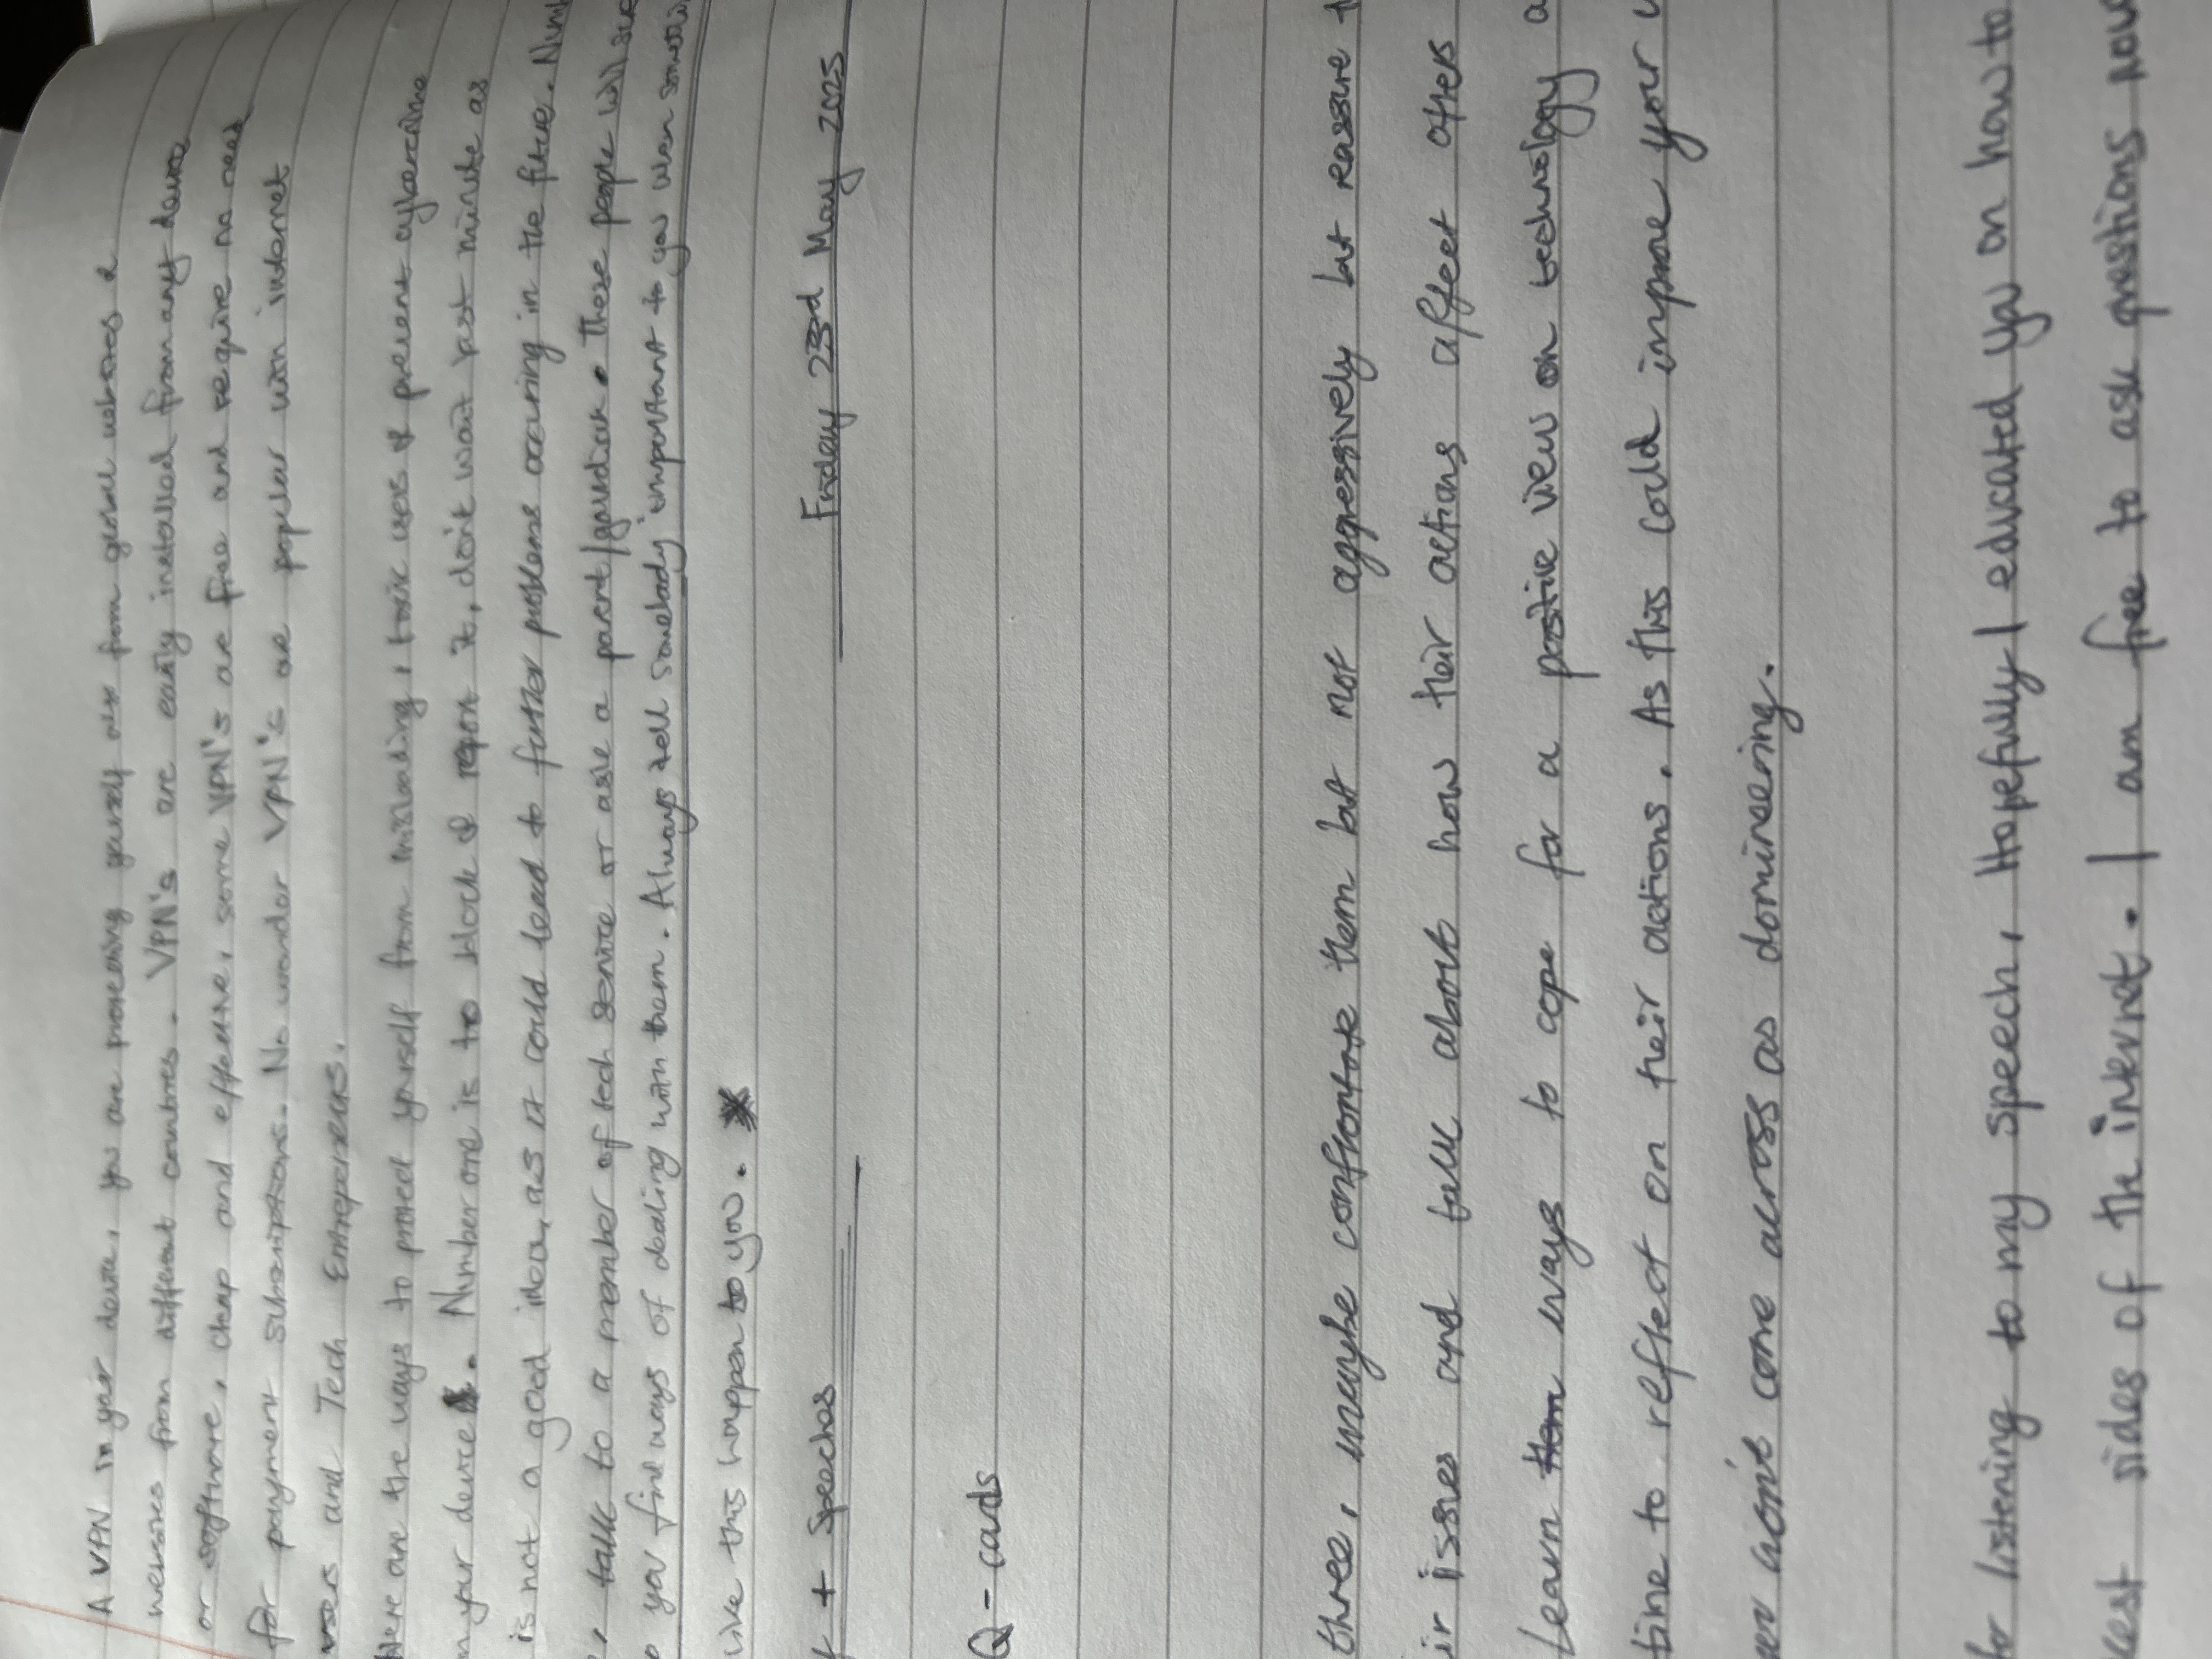 A VPN in your device, you are protecting yourself out from global viruses &
websites from different countries. VPN's are easily installed from any device
or software, cheap and effective, some VPN's are free and require no need
for payment subscriptions. No wonder VPN's are popular with internet
users and Tech
Here are the ways to protect yourself from misleading, toxic uses & prevent cybercrime
n your device. Number one is to block & report it, don't wait last minute as
is not a good idea, as it could lead to further problems occuring in the future. Num
, talk to a member of tech service or ask a parent/gaurdian. These people will sure
o you find ways of dealing with them. Always tell somebody important to you when somethi
like this happen to you.
+ Speeches Friday 23rd May 2025
Q-cards
three, maybe confrontate them but not aggressively but reassure t
ir issues and talk about how their actions affect others
Learn ways to cope for a postive view on technology a
time to reflect on their actions. As this could impose your v
won't come across as domineering.
for listening to my speech, Hopefully I educated you on how to
kest sides of the internet. I am free to ask questions now